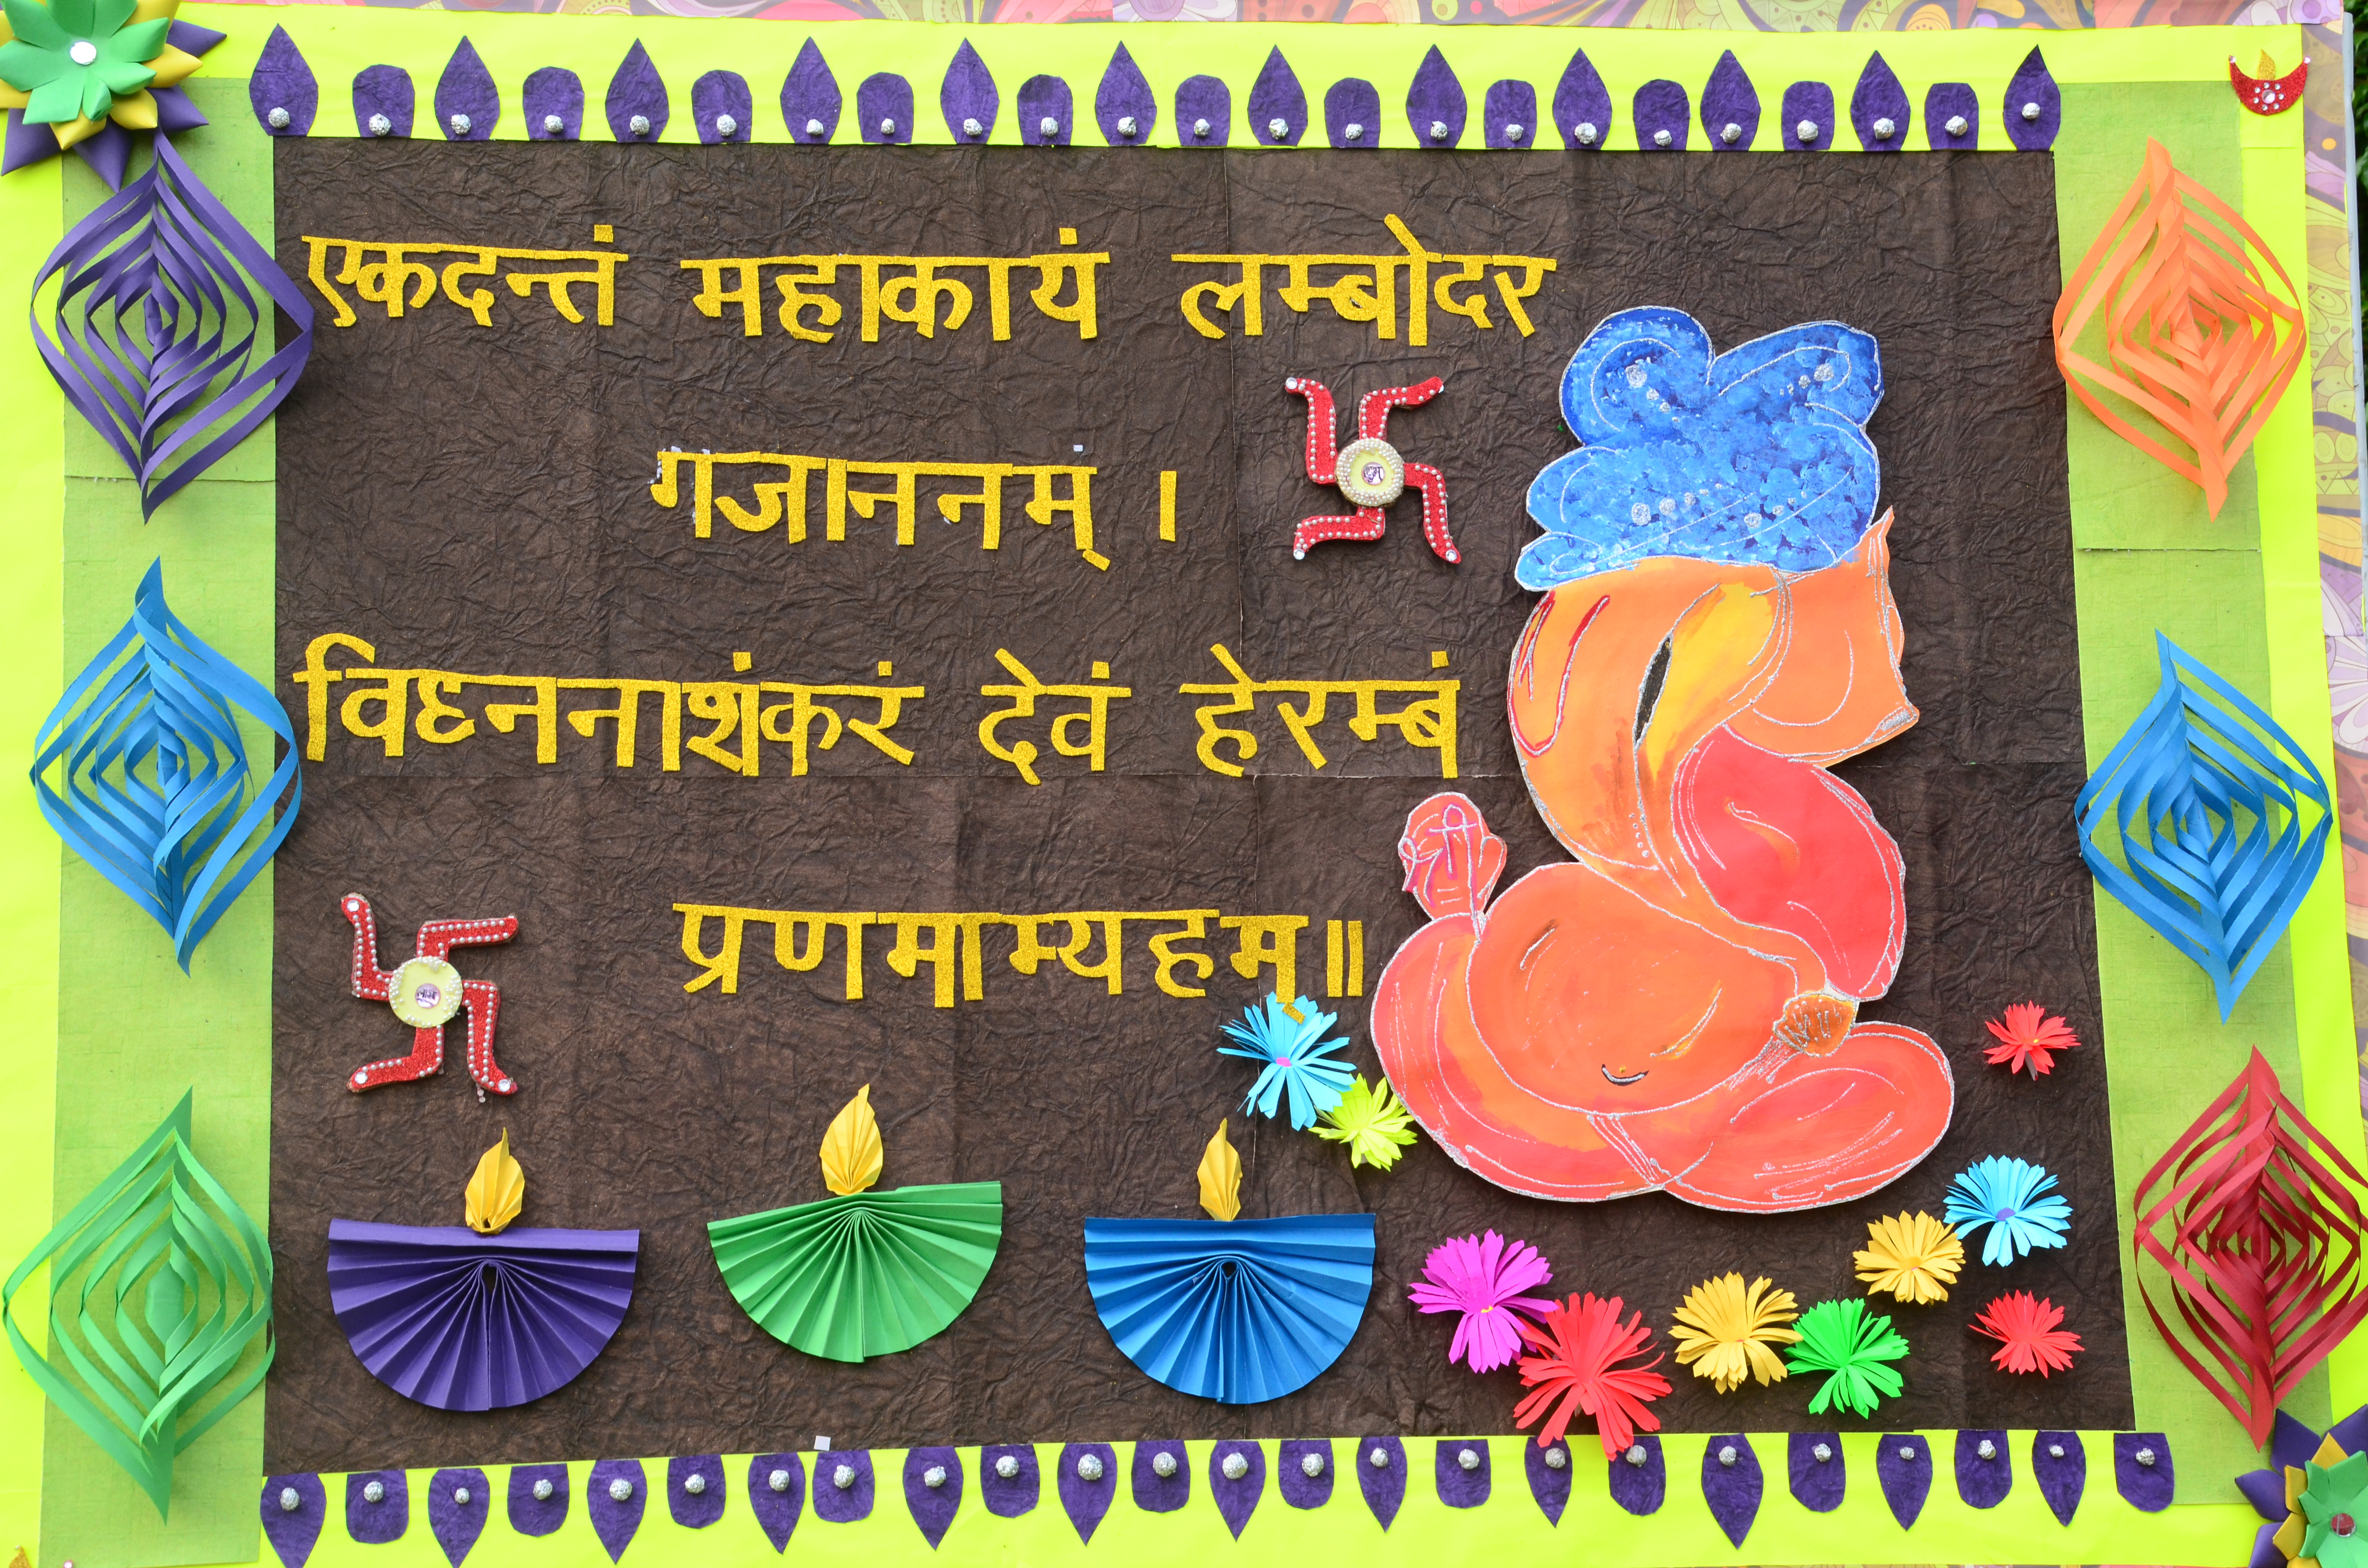 एकदन्तं महाकायं लम्बोदर
गजाननम् ।
विघ्ननाशंकरं देवं हेरम्बं
प्रणमाम्यहम्॥
श्री